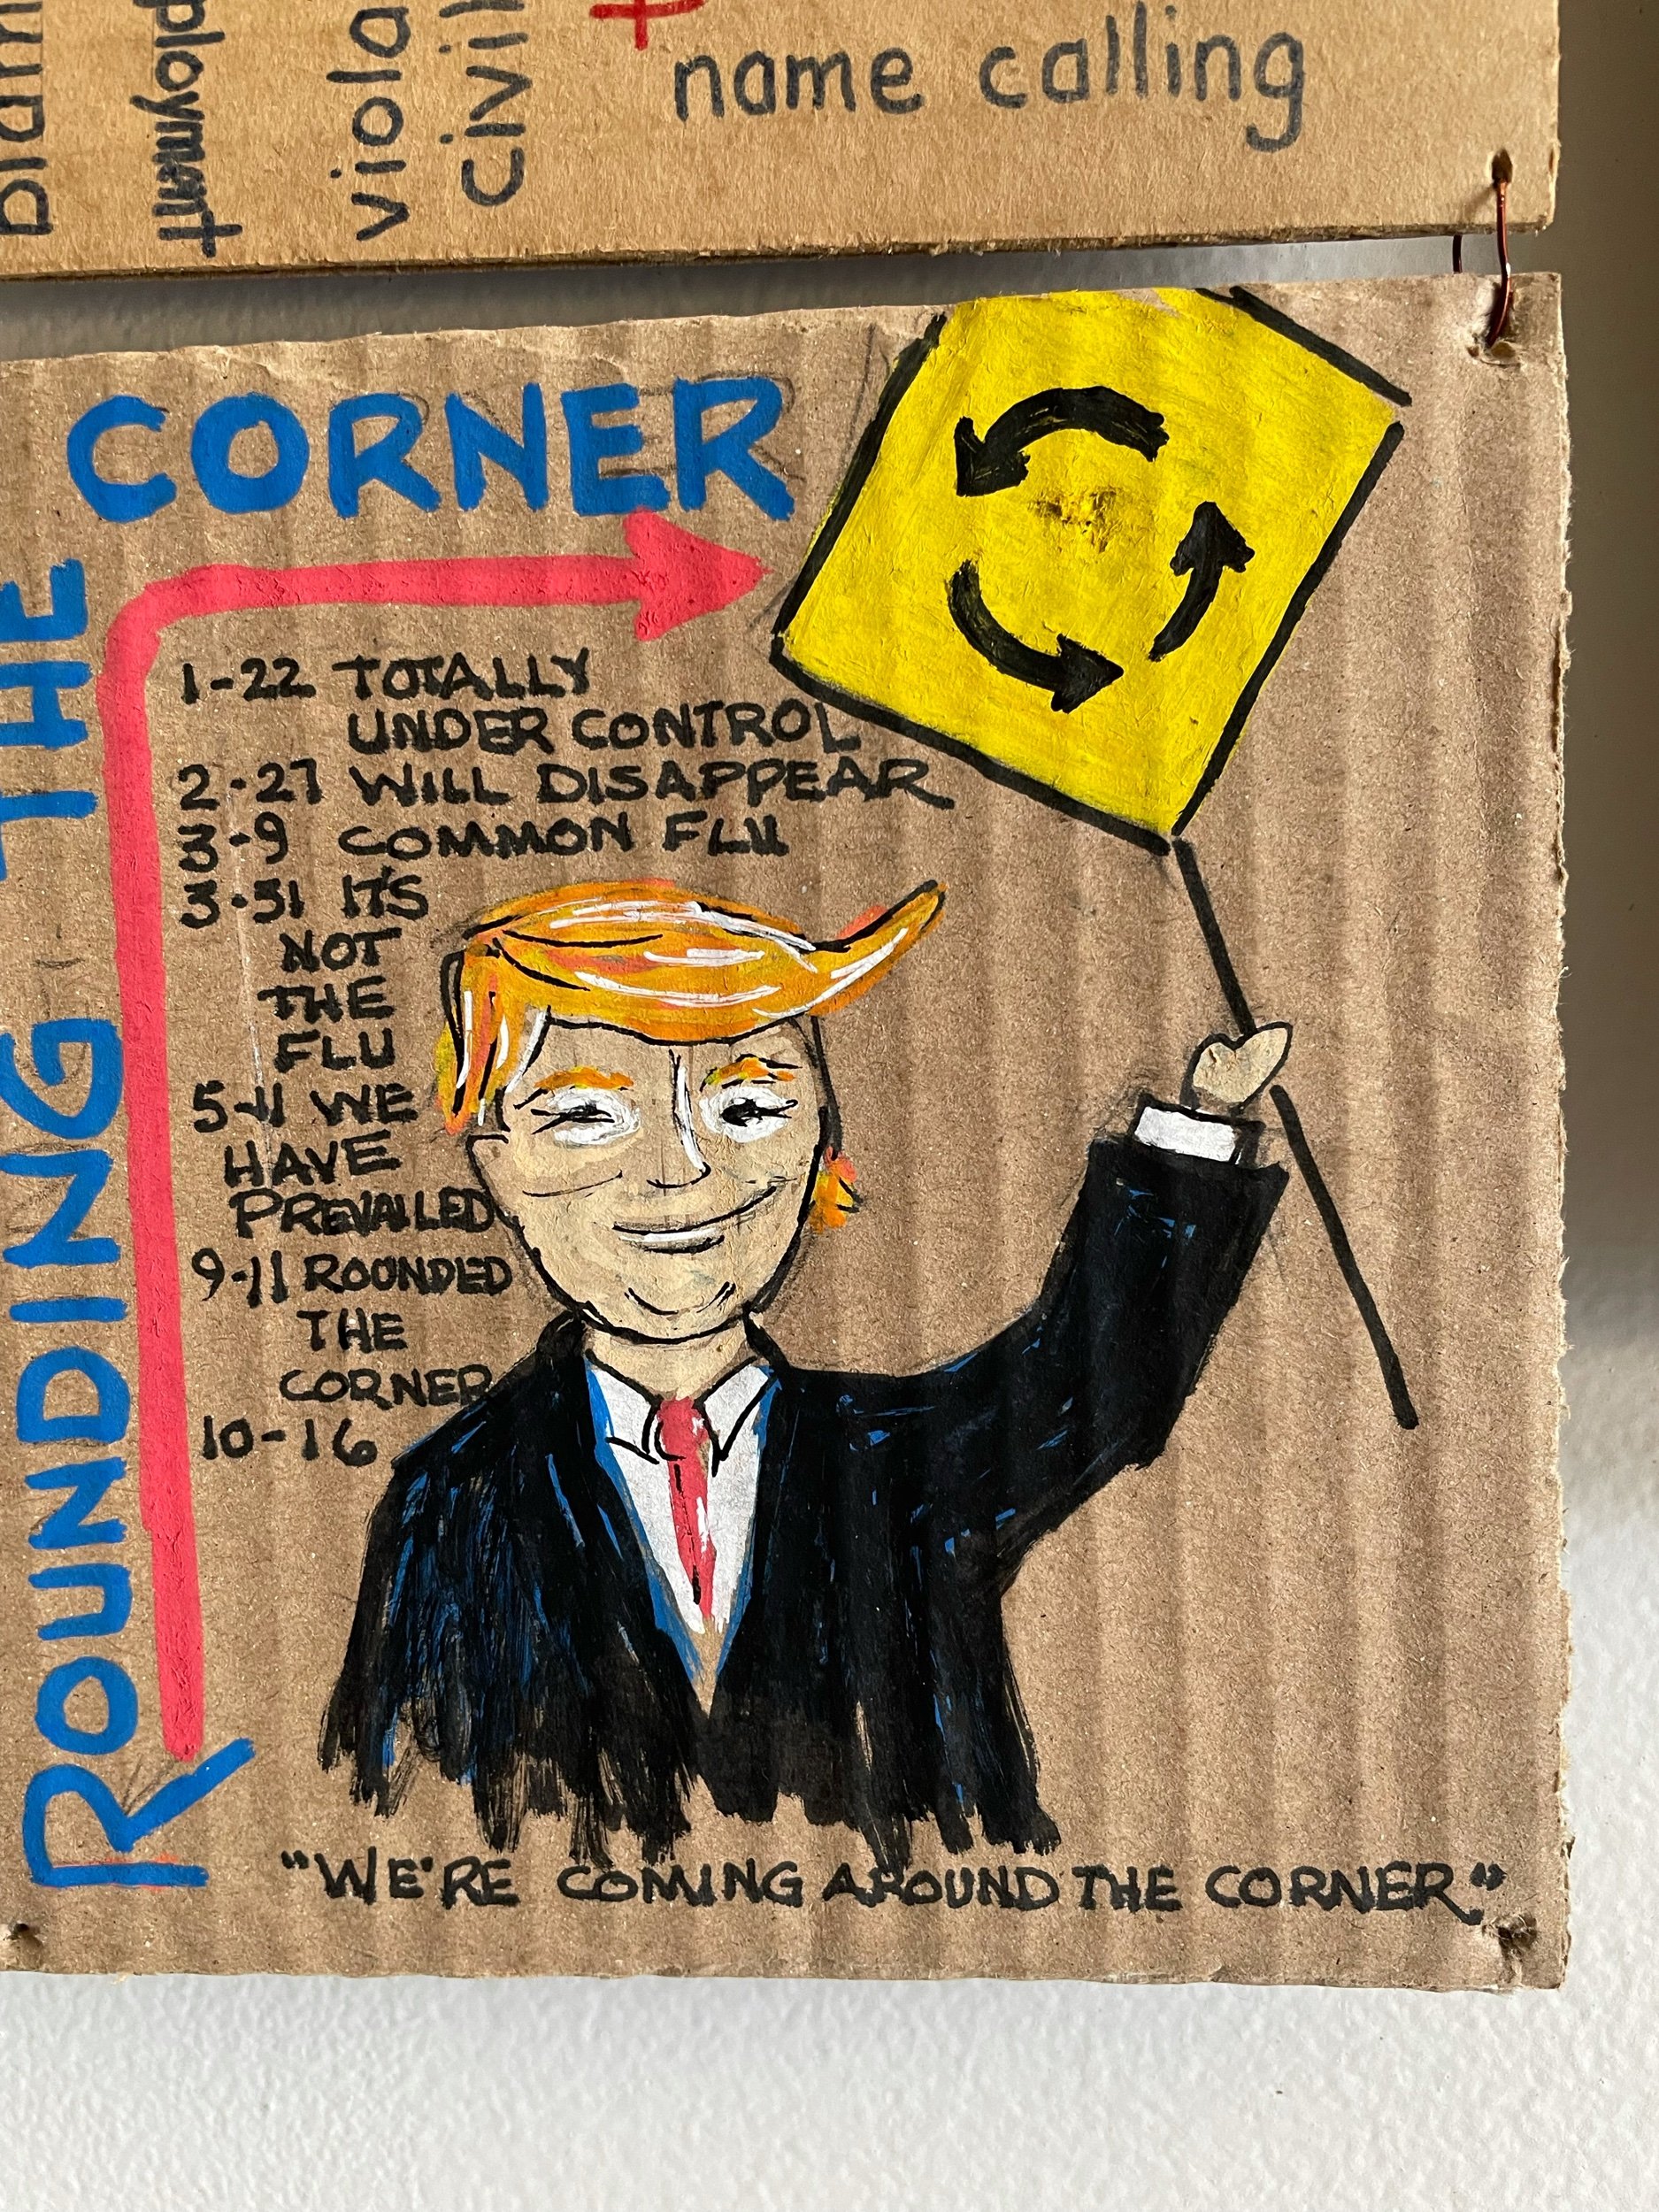 ployment
viola
civil
name calling
ROUNDING THE
CORNER
1-22 TOTALLY
UNDER CONTROL
2-27 WILL DISAPPEAR
3-9 COMMON FLU
3-31 IT'S
NOT
THE
FLU
5-11 WE
HAVE
PREVAILED
9-11 ROUNDED
THE
CORNER
10-16
"WE'RE COMING AROUND THE CORNER"